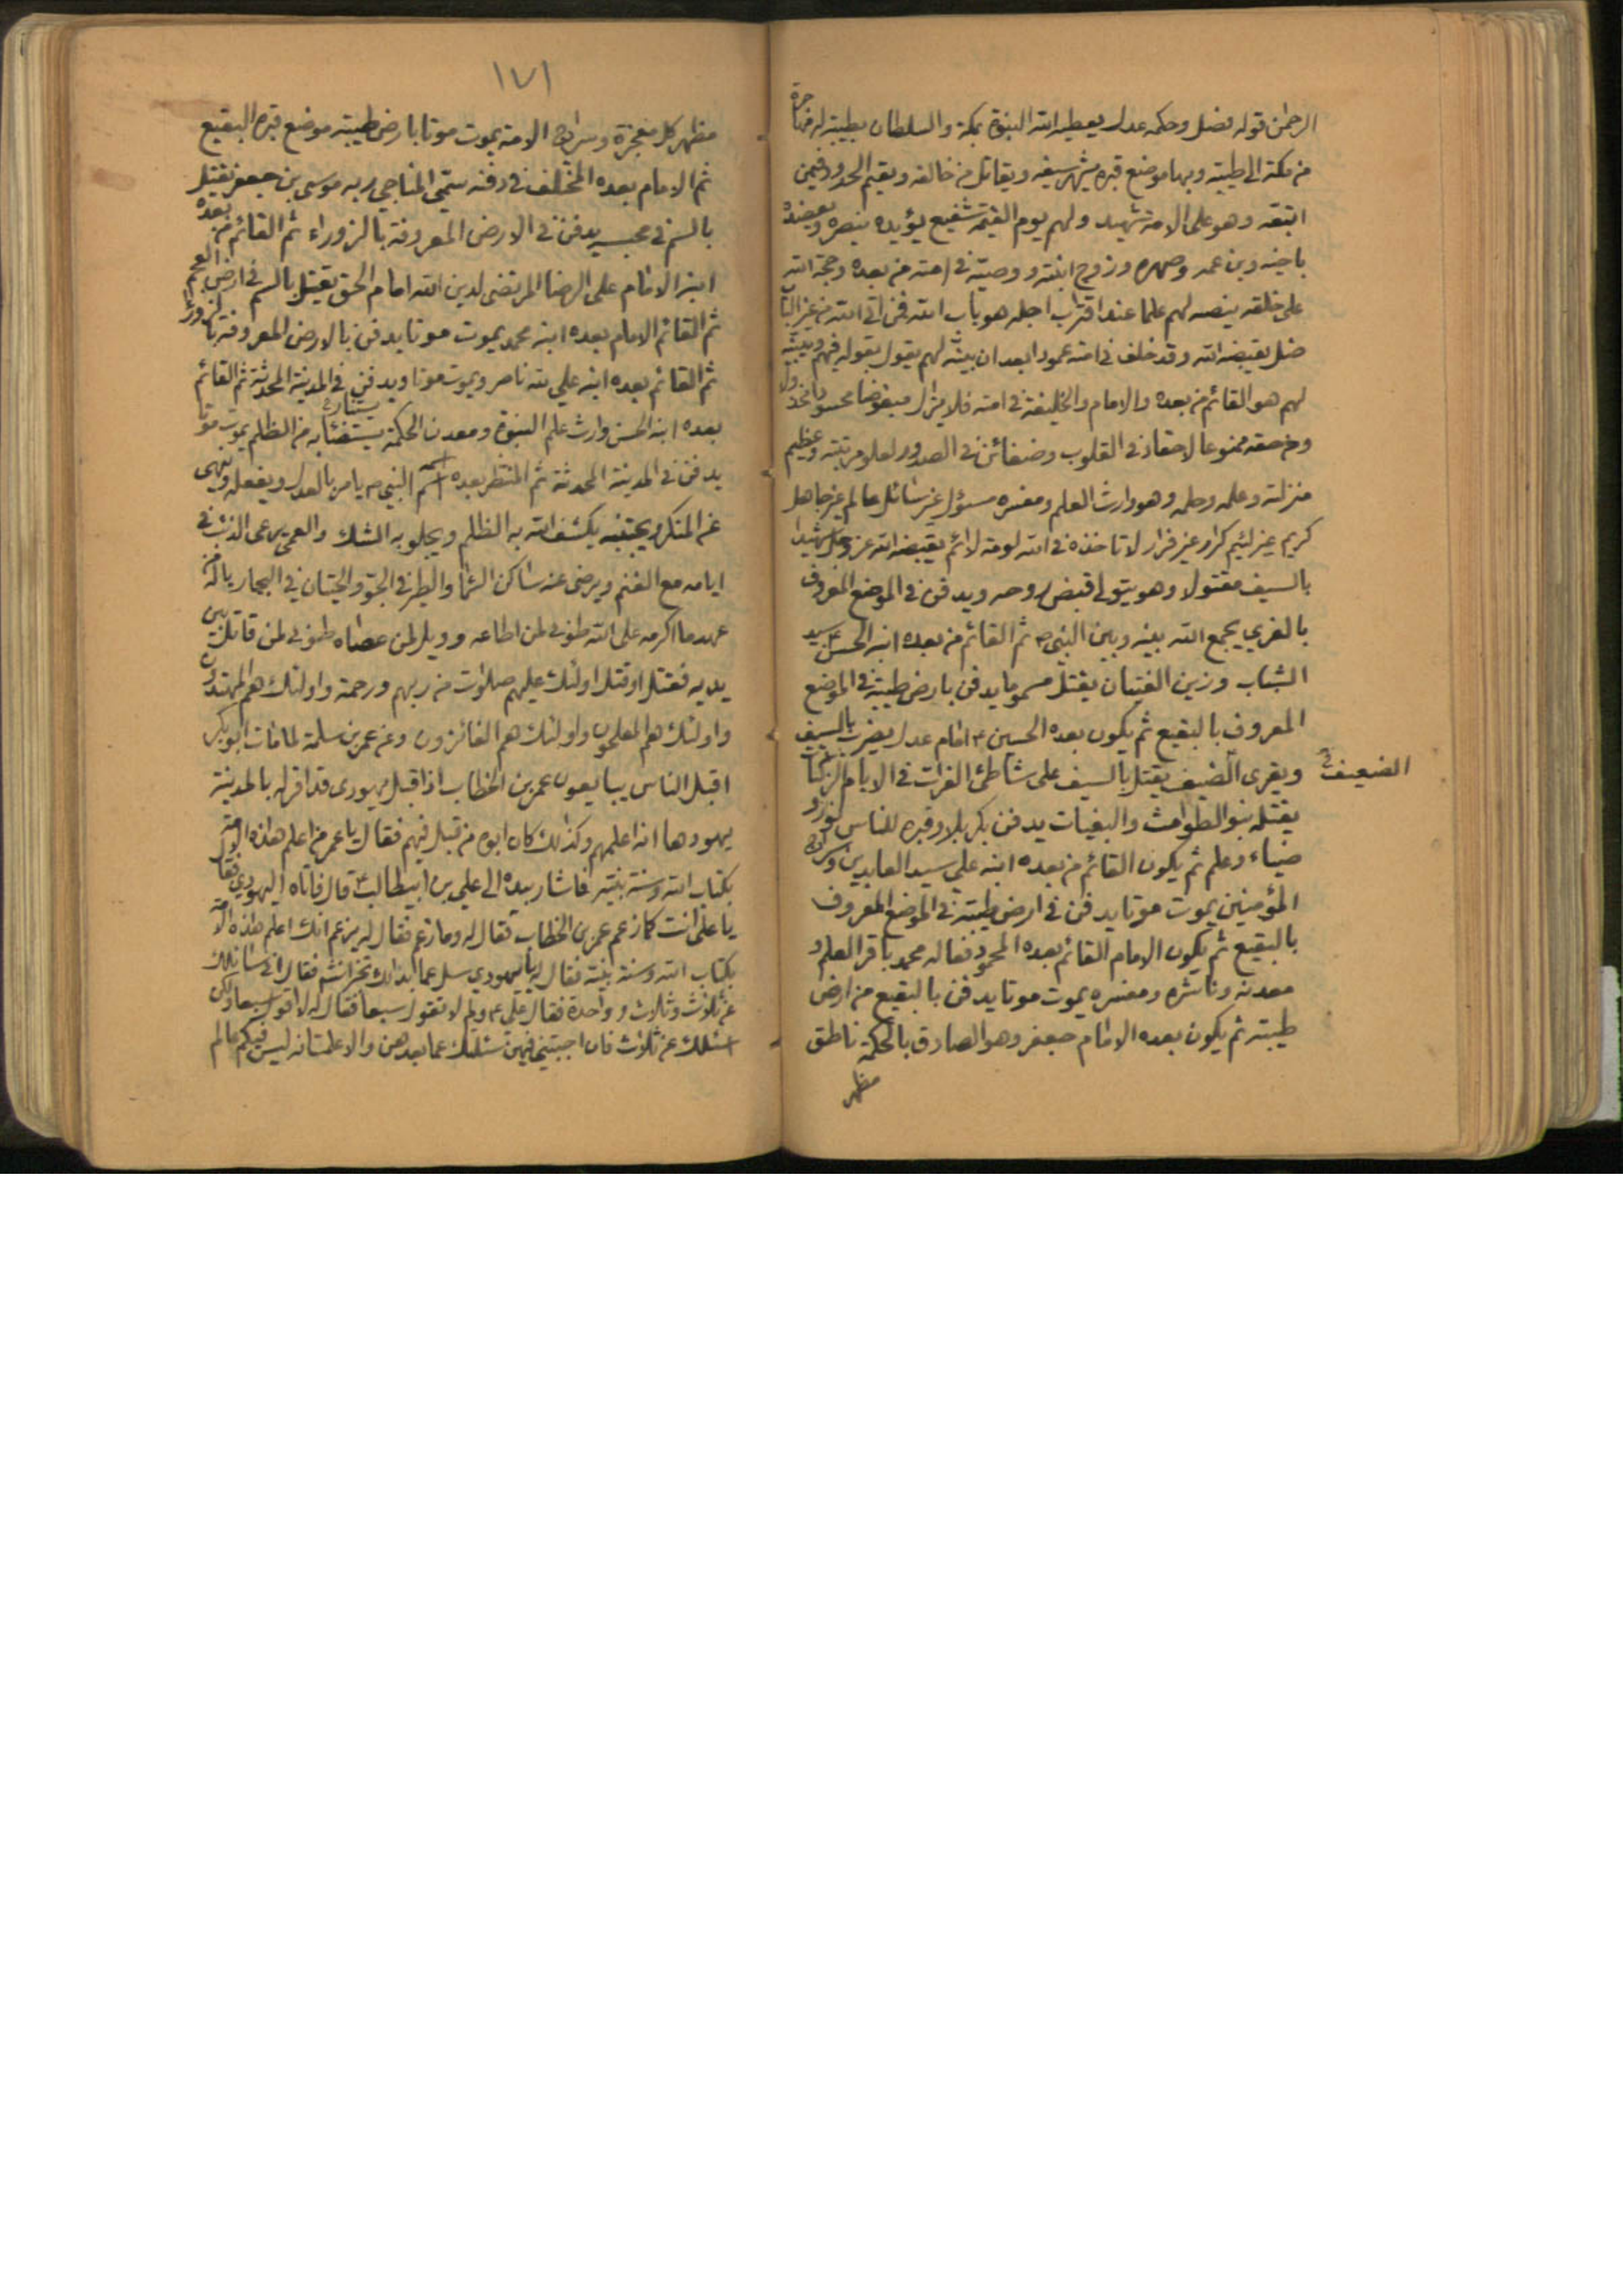 الرحمن قوله فضل وحكمه عدل يعطيه الله النبوة بمكة والسلطان بطيبة له مهاجرة
من مكة الى طيبة وبها موضع قبره يشهر سيفه ويقاتل من خالفه ويقيم الحدود فيمن
اتبعه وهو على الامة شهيد ولهم يوم القيمة شفيع يؤيده بنصره ويعضده
باخيه وبن عمه وصهره وزوج ابنته ووصيه في امته من بعده وحجة الله
على خلقه ينصبه لهم علما عند اقتراب اجله هو باب الله فمن اتى الله من غير الباب
ضل يقبضه الله وقد خلف في امته عمودا بعد ان يبينه لهم يقول بقوله فيهم ويبينه
لهم هو القائم من بعده والامام والخليفة في امته فلا يزال مبغوضا محسودا مخذولا
ومن حقه ممنوعا لاحقاد في القلوب وضغائن في الصدور لعلو مرتبته وعظيم
منزلته وعلمه وحلمه وهو وارث العلم ومفسره مسؤل غير سائل عالم غير جاهل
كريم غير لئيم كرار غير فرار لا تاخذه في الله لومة لائم يقبضه الله عز وجل شهيدا
بالسيف مقتولا وهو يتولى قبض روحه ويدفن في الموضع المعروف
بالغري يجمع الله بينه وبين النبي ص ثم القائم من بعده ابنه الحسن ع سيد
الشباب وزين الفتيان يقتل مسموما يدفن بارض طيبة في الموضع
المعروف بالبقيع ثم يكون بعده الحسين ع امام عدل يضرب بالسيف
ويقرى الضيف يقتل بالسيف على شاطئ الفرات في الايام الزاكيات
الضعيف
يقتله بنو الطوامث والبغيات يدفن بكربلا وقبره للناس نور و
ضياء وعلم ثم يكون القائم من بعده ابنه علي سيد العابدين وسراج
المؤمنين يموت موتا يدفن في ارض طيبة في الموضع المعروف
بالبقيع ثم يكون الامام القائم بعده المحمود فعاله محمد باقر العلم و
معدنه وناشره ومفسره يموت موتا يدفن بالبقيع من ارض
طيبة ثم يكون بعده الامام جعفر وهو الصادق بالحكمة ناطق
مظهر
١٧١
مظهر كل معجزة وسراج الامة يموت موتا بارض طيبة موضع قبره البقيع
ثم الامام بعده المختلف في دفنه سمي المناجي ربه موسى بن جعفر يقتل
بالسم في محبسه يدفن في الارض المعروفة بالزوراء ثم القائم من بعده
ابنه الامام علي الرضا المرتضى لدين الله امام الحق يقتل بالسم في ارض العجم
ثم القائم الامام بعده ابنه محمد يموت موتا يدفن بالارض المعروفة بالزوراء
ثم القائم بعده ابنه علي لله ناصر ويموت موتا ويدفن في المدينة المحدثة ثم القائم
بعده ابنه الحسن وارث علم النبوة ومعدن الحكمة يستضاء به من الظلم يموت موتا
يدفن في المدينة المحدثة ثم المنتظر بعده اسمه اسم النبي ص يامر بالعدل ويفعله وينهى
عن المنكر ويجتنبه يكشف الله به الظلم ويجلو به الشك والعمى يرعى الذئب في
ايامه مع الغنم ويرضى عنه ساكن السماء والطير في الجو والحيتان في البحار ياله من
عبد ما اكرمه على الله طوبى لمن اطاعه وويل لمن عصاه طوبى لمن قاتل بين
يديه فقتل او قتل اولئك عليهم صلوات من ربهم ورحمة واولئك هم المهتدون
واولئك هم المفلحون واولئك هم الفائزون وعن عمر بن سلمة لما مات ابو بكر
اقبل الناس يبايعون عمر بن الخطاب اذ اقبل يهودى قد اقر له بالمدينة
يهودها انه اعلمهم وكذلك كان ابوه من قبل فيهم فقال يا عمر من اعلم هذه الامة
بكتاب الله وسنة نبيه فاشار بيده الى علي بن ابيطالب ع قال فاتاه اليهودي فقال
يا علي انت كما زعم عمر بن الخطاب فقال له وما زعم فقال له يزعم انك اعلم هذه الامة
بكتاب الله وسنة نبيه فقال له يا يهودي سل عما بدا لك تخبر انشاء فقال اني سائلك
عن ثلاث وثلاث وواحدة فقال علي ع ولم لا تقول سبعا فقال له لا اقول سبعا ولكن
اسئلك عن ثلاث فان اجبتني فيهن سئلتك عما بعدهن والا علمت انه ليس فيكم عالم